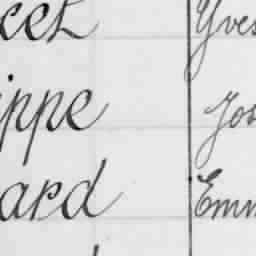 cet Yves
ippe Jos
ard Emm